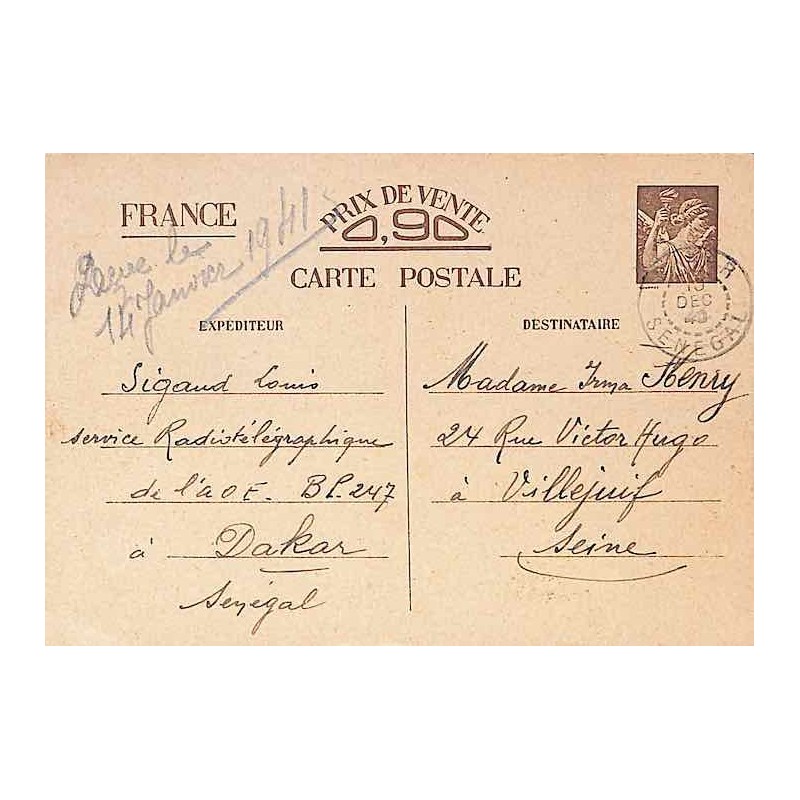 FRANCE
PRIX DE VENTE
0,90
CARTE POSTALE
Reçue le
14 Janvier 1941
DEC
SENEGAL
EXPÉDITEUR
Sigaud Louis
service Radiotélégraphique
de l'AOF. BP. 247
à Dakar
Sénégal
DESTINATAIRE
Madame Irma Henry
24 Rue Victor Hugo
à Villejuif
Seine